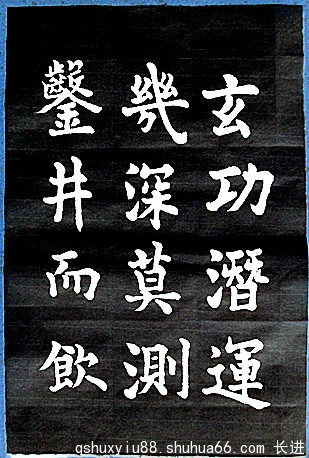 玄功潛運
幾深莫測
鑿井而飲
qshuxyiu88.shuhua66.com 长进